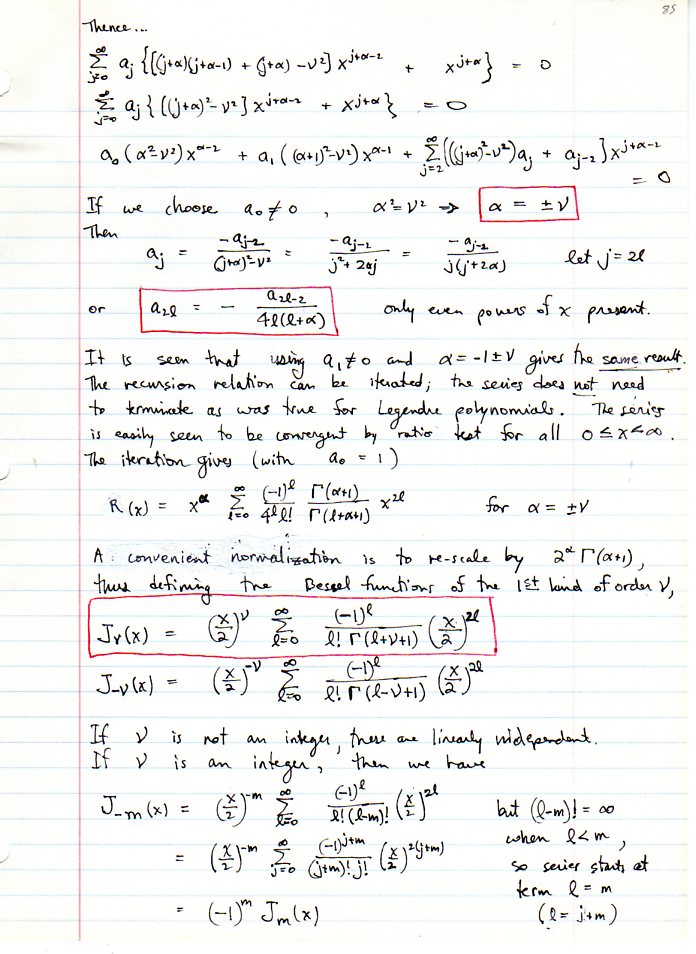 85
Thence...
∑_{j=0}^{∞} a_j {[(j+α)(j+α-1) + (j+α) - ν²] x^{j+α-2} + x^{j+α}} = 0
∑_{j=0}^{∞} a_j {[(j+α)² - ν²] x^{j+α-2} + x^{j+α}} = 0
a₀(α²-ν²)x^{α-2} + a₁((α+1)²-ν²)x^{α-1} + ∑_{j=2}^{∞} [((j+α)²-ν²)a_j + a_{j-2}] x^{j+α-2}
= 0
If we choose a₀ ≠ 0 , α² = ν² → α = ±ν
Then
a_j = -a_{j-2}/((j+α)²-ν²) = -a_{j-2}/(j²+2αj) = -a_{j-2}/(j(j+2α)) let j = 2l
or a_{2l} = - a_{2l-2}/(4l(l+α)) only even powers of x present.
It is seen that using a₁ ≠ 0 and α = -1±ν gives the same result.
The recursion relation can be iterated; the series does not need
to terminate as was true for Legendre polynomials. The series
is easily seen to be convergent by ratio test for all 0 ≤ x < ∞.
The iteration gives (with a₀ = 1)
R(x) = x^α ∑_{l=0}^{∞} (-1)^l/(4^l l!) Γ(α+1)/Γ(l+α+1) x^{2l} for α = ±ν
A convenient normalization is to re-scale by 2^α Γ(α+1),
thus defining the Bessel functions of the 1st kind of order ν,
J_ν(x) = (x/2)^ν ∑_{l=0}^{∞} (-1)^l/(l! Γ(l+ν+1)) (x/2)^{2l}
J_{-ν}(x) = (x/2)^{-ν} ∑_{l=0}^{∞} (-1)^l/(l! Γ(l-ν+1)) (x/2)^{2l}
If ν is not an integer, these are linearly independent.
If ν is an integer, then we have
J_{-m}(x) = (x/2)^{-m} ∑_{l=0}^{∞} (-1)^l/(l!(l-m)!) (x/2)^{2l} but (l-m)! = ∞
when l<m,
= (x/2)^{-m} ∑_{j=0}^{∞} (-1)^{j+m}/((j+m)! j!) (x/2)^{2(j+m)} so series starts at
term l = m
= (-1)^m J_m(x) (l = j+m)